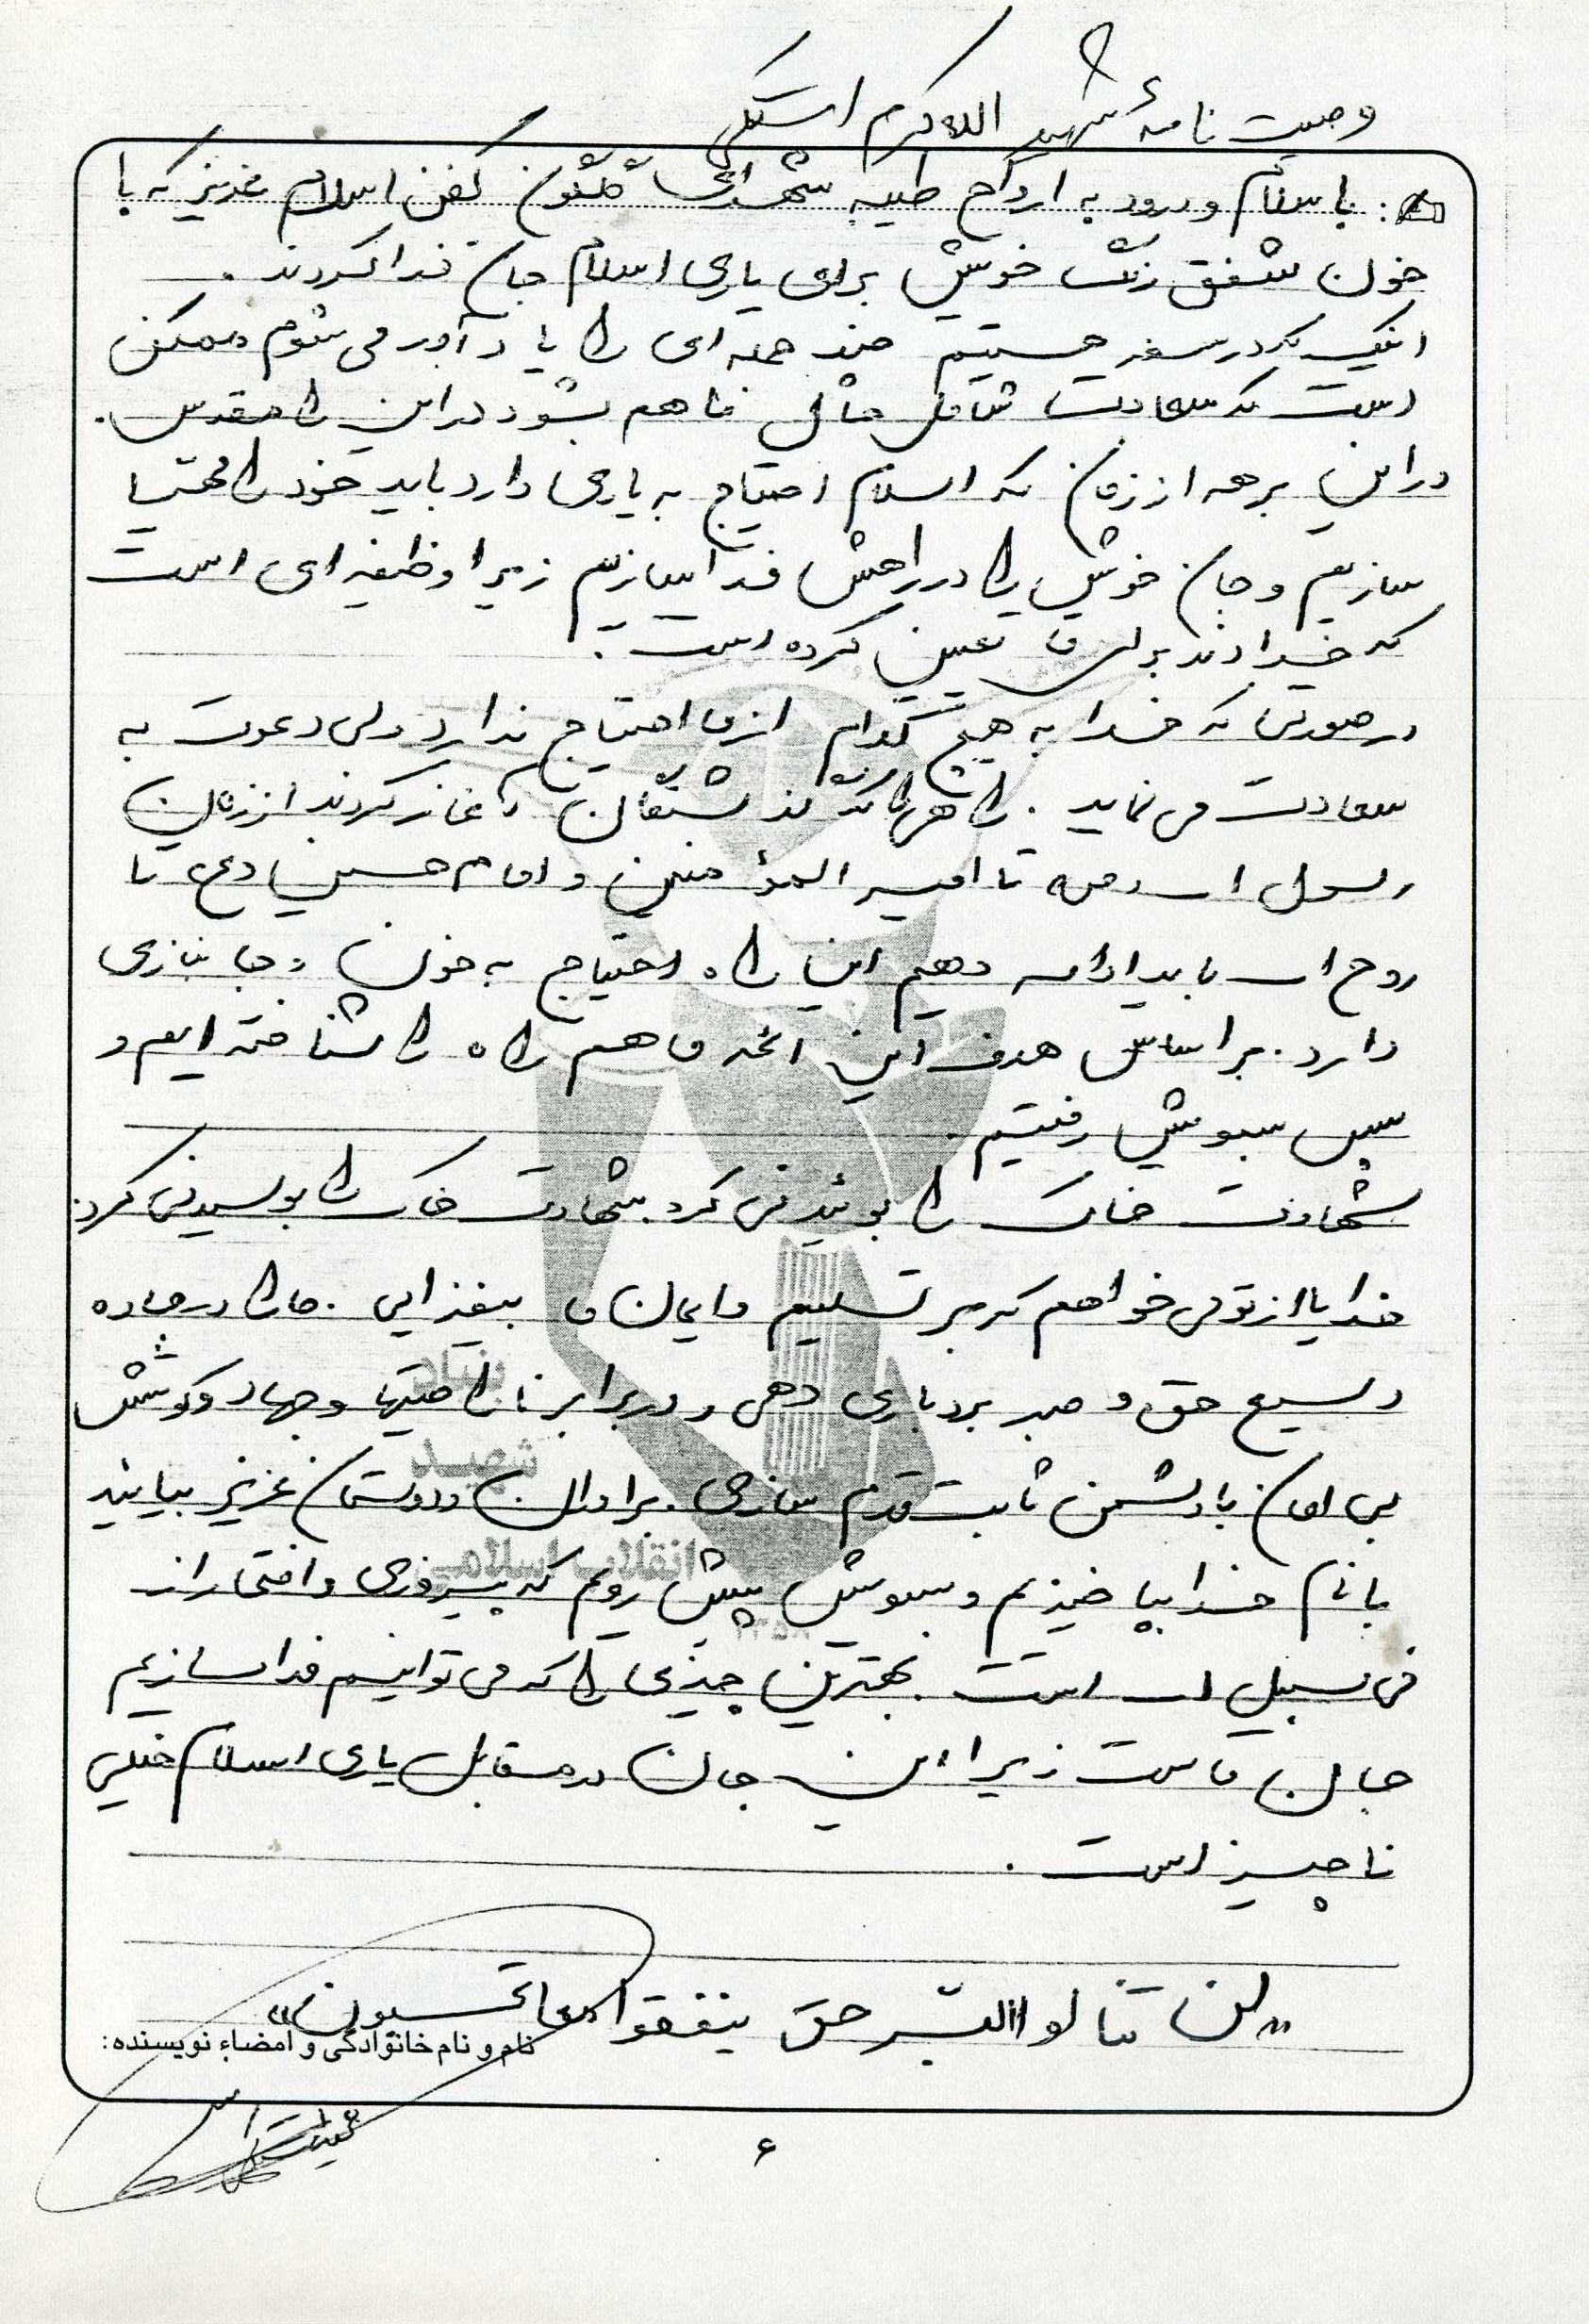 وصیت نامهٔ شهید الله کرم استکی
با سلام و درود به ارواح طیبه شهدای گلگون کفن اسلام عزیز که با
خون شفق رنگ خویش برای یاری اسلام جان فدا کردند .
اینک که در سفر هستیم چند جمله ای را یاد آور می شوم ممکن
است که سعادت شامل حال ما هم بشود در این راه مقدس .
در این برهه از زمان که اسلام احتیاج به یاری دارد باید خود را مهیا
سازیم و جان خویش را در راهش فدا سازیم زیرا وظیفه ای است
که خداوند برای ما تعیین کرده است .
در صورتی که خدا به هیچ کدام از ما احتیاج ندارد ولی دعوت به
سعادت می نماید . راهی را که گذشتگان آغاز کردند از زمان
رسول الله (ص) تا امیر المؤمنین و امام حسین (ع) تا
روح الله باید ادامه دهیم این راه احتیاج به خون و جانبازی
دارد . بر اساس هدف این ائمه ما هم راه را شناخته ایم و
سپس بسویش رفتیم .
شهادت خاک را بوئیدنی کرد . شهادت خاک را بوسیدنی کرد .
خدایا از تو می خواهم که بر تسلیم و ایمان ما بیفزایی . ما را در جاده
وسیع حق و صبر بردباری دهی و در برابر ناراحتیها و جهاد و کوشش
بی امان با دشمن ثابت قدم سازی . برادران و دوستان عزیز بیایید
با نام خدا بپا خیزیم و بسویش پیش رویم که پیروزی و افتخار از
فی سبیل الله است . بهترین چیزی را که می توانیم فدا سازیم
جان ماست زیرا این جان در مقابل یاری اسلام خیلی
ناچیز است .
«لن تنالوا البر حتی ینفقوا مما تحبون»
نام و نام خانوادگی و امضاء نویسنده:
۶
بنیاد
شهید
انقلاب اسلامی
۱۳۵۸